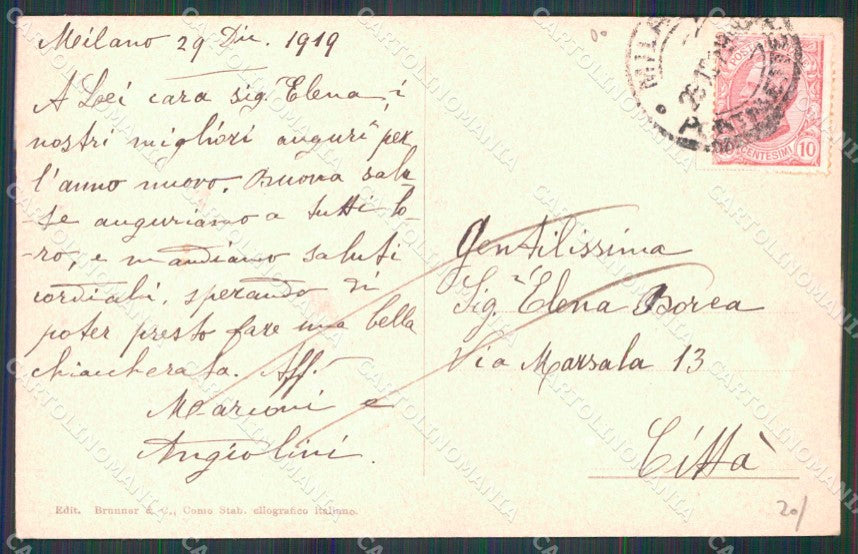 Milano 29 Dic. 1919
A Lei cara sigª Elena, i
nostri migliori auguri per
l'anno nuovo. Buona salu-
te auguriamo a tutti lo-
-ro, e mandiamo saluti
cordiali, sperando di
poter presto fare una bella
chiaccherata. Aff.
Marconi e
Angiolini.
Gentilissima
Sig.ª Elena Borea
Via Marsala 13
Città
POSTE
CENTESIMI 10
MILANO
Edit. Brunner & C., Como Stab. eliografico italiano.
20/
CARTOLINOMANIA